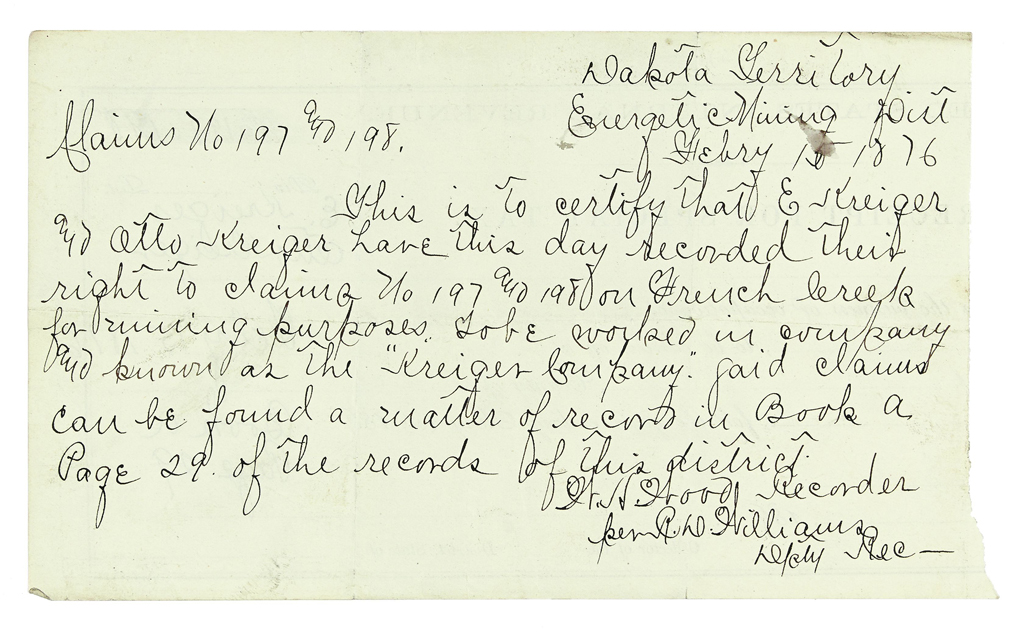 Dakota Territory
Energetic Mining Dist
Claims No 197 and 198.
Febry 15 1876
This is to certify that E Kreiger
and Otto Kreiger have this day recorded their
right to claims No 197 and 198 on French Creek
for mining purposes. To be worked in company
and known as the "Kreiger Company". Said claims
can be found a matter of record in Book A
Page 29. of the records of this district.
W. H. Wood Recorder
per R. D. Williams
Dpty Rec —